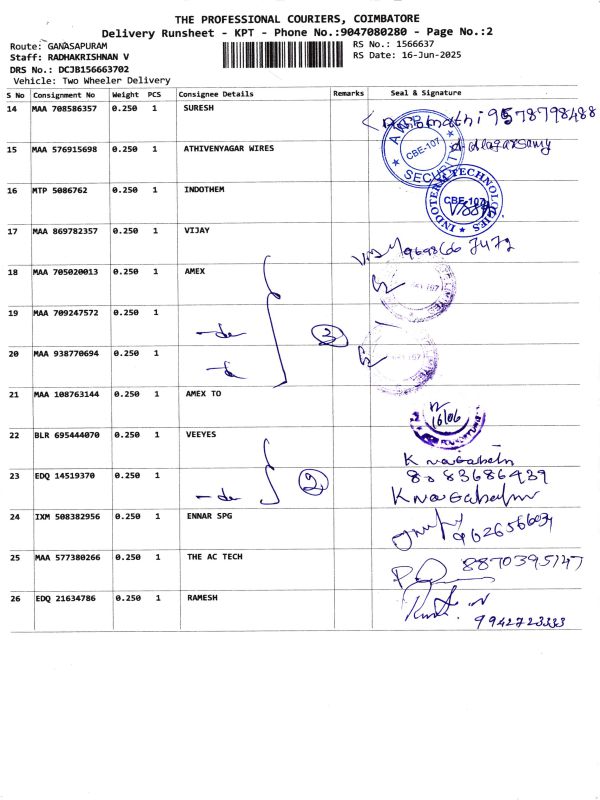 THE PROFESSIONAL COURIERS, COIMBATORE
Delivery Runsheet - KPT - Phone No.:9047080280 - Page No.:2
Route: GANASAPURAM
RS No.: 1566637
Staff: RADHAKRISHNAN V
RS Date: 16-Jun-2025
DRS No.: DCJB156663702
Vehicle: Two Wheeler Delivery
S No Consignment No Weight PCS Consignee Details Remarks Seal & Signature
14 MAA 708586357 0.250 1 SURESH
9578798488
15 MAA 576915698 0.250 1 ATHIVENYAGAR WIRES
CBE-107
SECURITY
16 MTP 5086762 0.250 1 INDOTHEM
INDOTERM TECHNOLOGIES
CBE-107
17 MAA 869782357 0.250 1 VIJAY
Vijay 9698660 7472
18 MAA 705020013 0.250 1 AMEX
19 MAA 709247572 0.250 1
-do
3
20 MAA 938770694 0.250 1
-do
21 MAA 108763144 0.250 1 AMEX TO
16/06
22 BLR 695444070 0.250 1 VEEYES
23 EDQ 14519370 0.250 1
8083686439
-do
2
24 IXM 508382956 0.250 1 ENNAR SPG
9626566034
25 MAA 577380266 0.250 1 THE AC TECH
8870395147
26 EDQ 21634786 0.250 1 RAMESH
9942723333